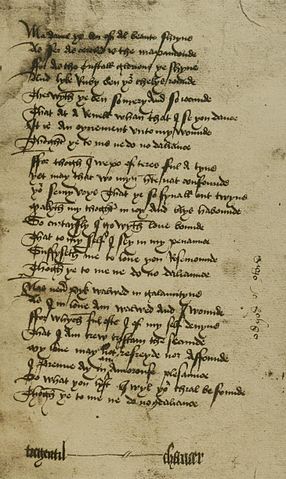 Madame ye ben of al beaute shryne
As fer as cercled is the mapamonde
ffor as the cristall glorious ye shyne
And lyke Ruby ben yor chekys rounde
Therwyth ye ben so mery and so iocunde
That at a Reuell whan that I se you dance
It is an oynement vnto my wounde
Thoght ye to me ne do no daliance
ffor thogh I wepe of teres ful a tyne
Yet may that wo myn herte nat confounde
Yor semy voys that ye so small out twyne
Makyth my thoght in ioy and blys habounde
So curtaysly I go wyth loue bounde
That to my self I sey in my penaunce
Suffyseth me to loue you Rosemounde
Thogh ye to me ne do no daliaunce
Nas neuer pyk walwed in galauntyne
As I in loue am walwed and I wounde
ffor whych ful ofte I of my self deuyne
That I am trew tristam the secunde
My loue may not refreyde nor affounde
I brenne ay in an amorouse plesaunce
Do what you lyst I wyl yor thral be founde
Thogh ye to me ne do no daliance
tregentil chaucer